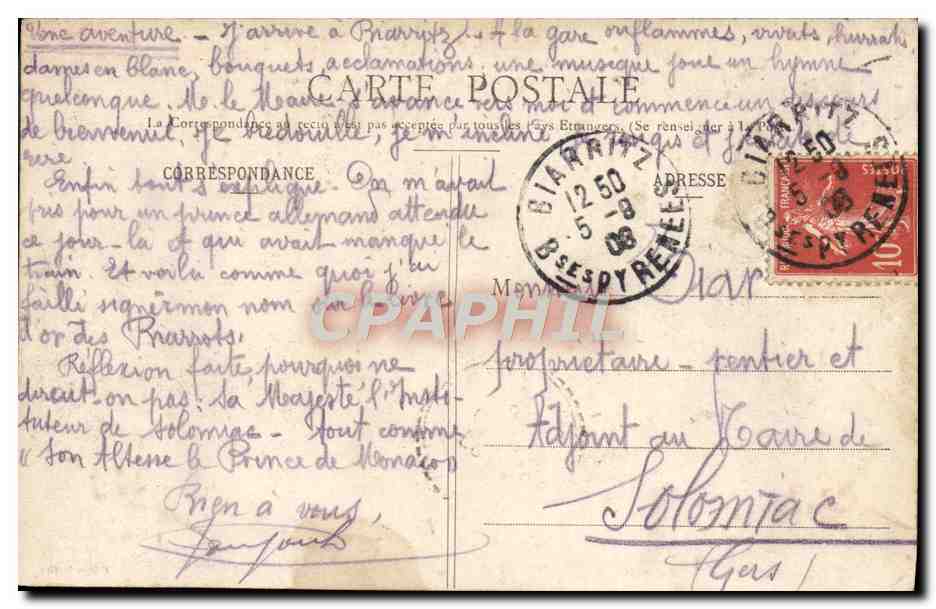 Une aventure. — J'arrive à Biarritz. A la gare oriflammes, vivats, hurrah,
dames en blanc, bouquets, acclamations, une musique joue un hymne
CARTE POSTALE
quelconque. M. le Maire s'avance vers moi et commence un discours
La Correspondance au recto n'est pas acceptée par tous les Pays Etrangers. (Se renseigner à la Poste)
de bienvenue. Je bredouille, je m'incline
CORRESPONDANCE
ADRESSE
Enfin tout s'explique. On m'avait
pris pour un prince allemand attendu
ce jour-là et qui avait manqué le
train. Et voilà comme quoi j'ai
failli signer mon nom sur le livre
d'or des Biarrots.
Réflexion faite, pourquoi ne
dirait-on pas: Sa Majesté l'Insti-
tuteur de Solomiac — tout comme
« Son Altesse le Prince de Monaco »
Bien à vous,
BIARRITZ
12 50
5 -8
08
Bses PYRENEES
BIARRITZ
12 50
5 -8
08
Bses PYRENEES
POSTES
10
Monsieur
propriétaire - rentier et
Adjoint au Maire de
Solomiac
(Gers)
CPAPHIL